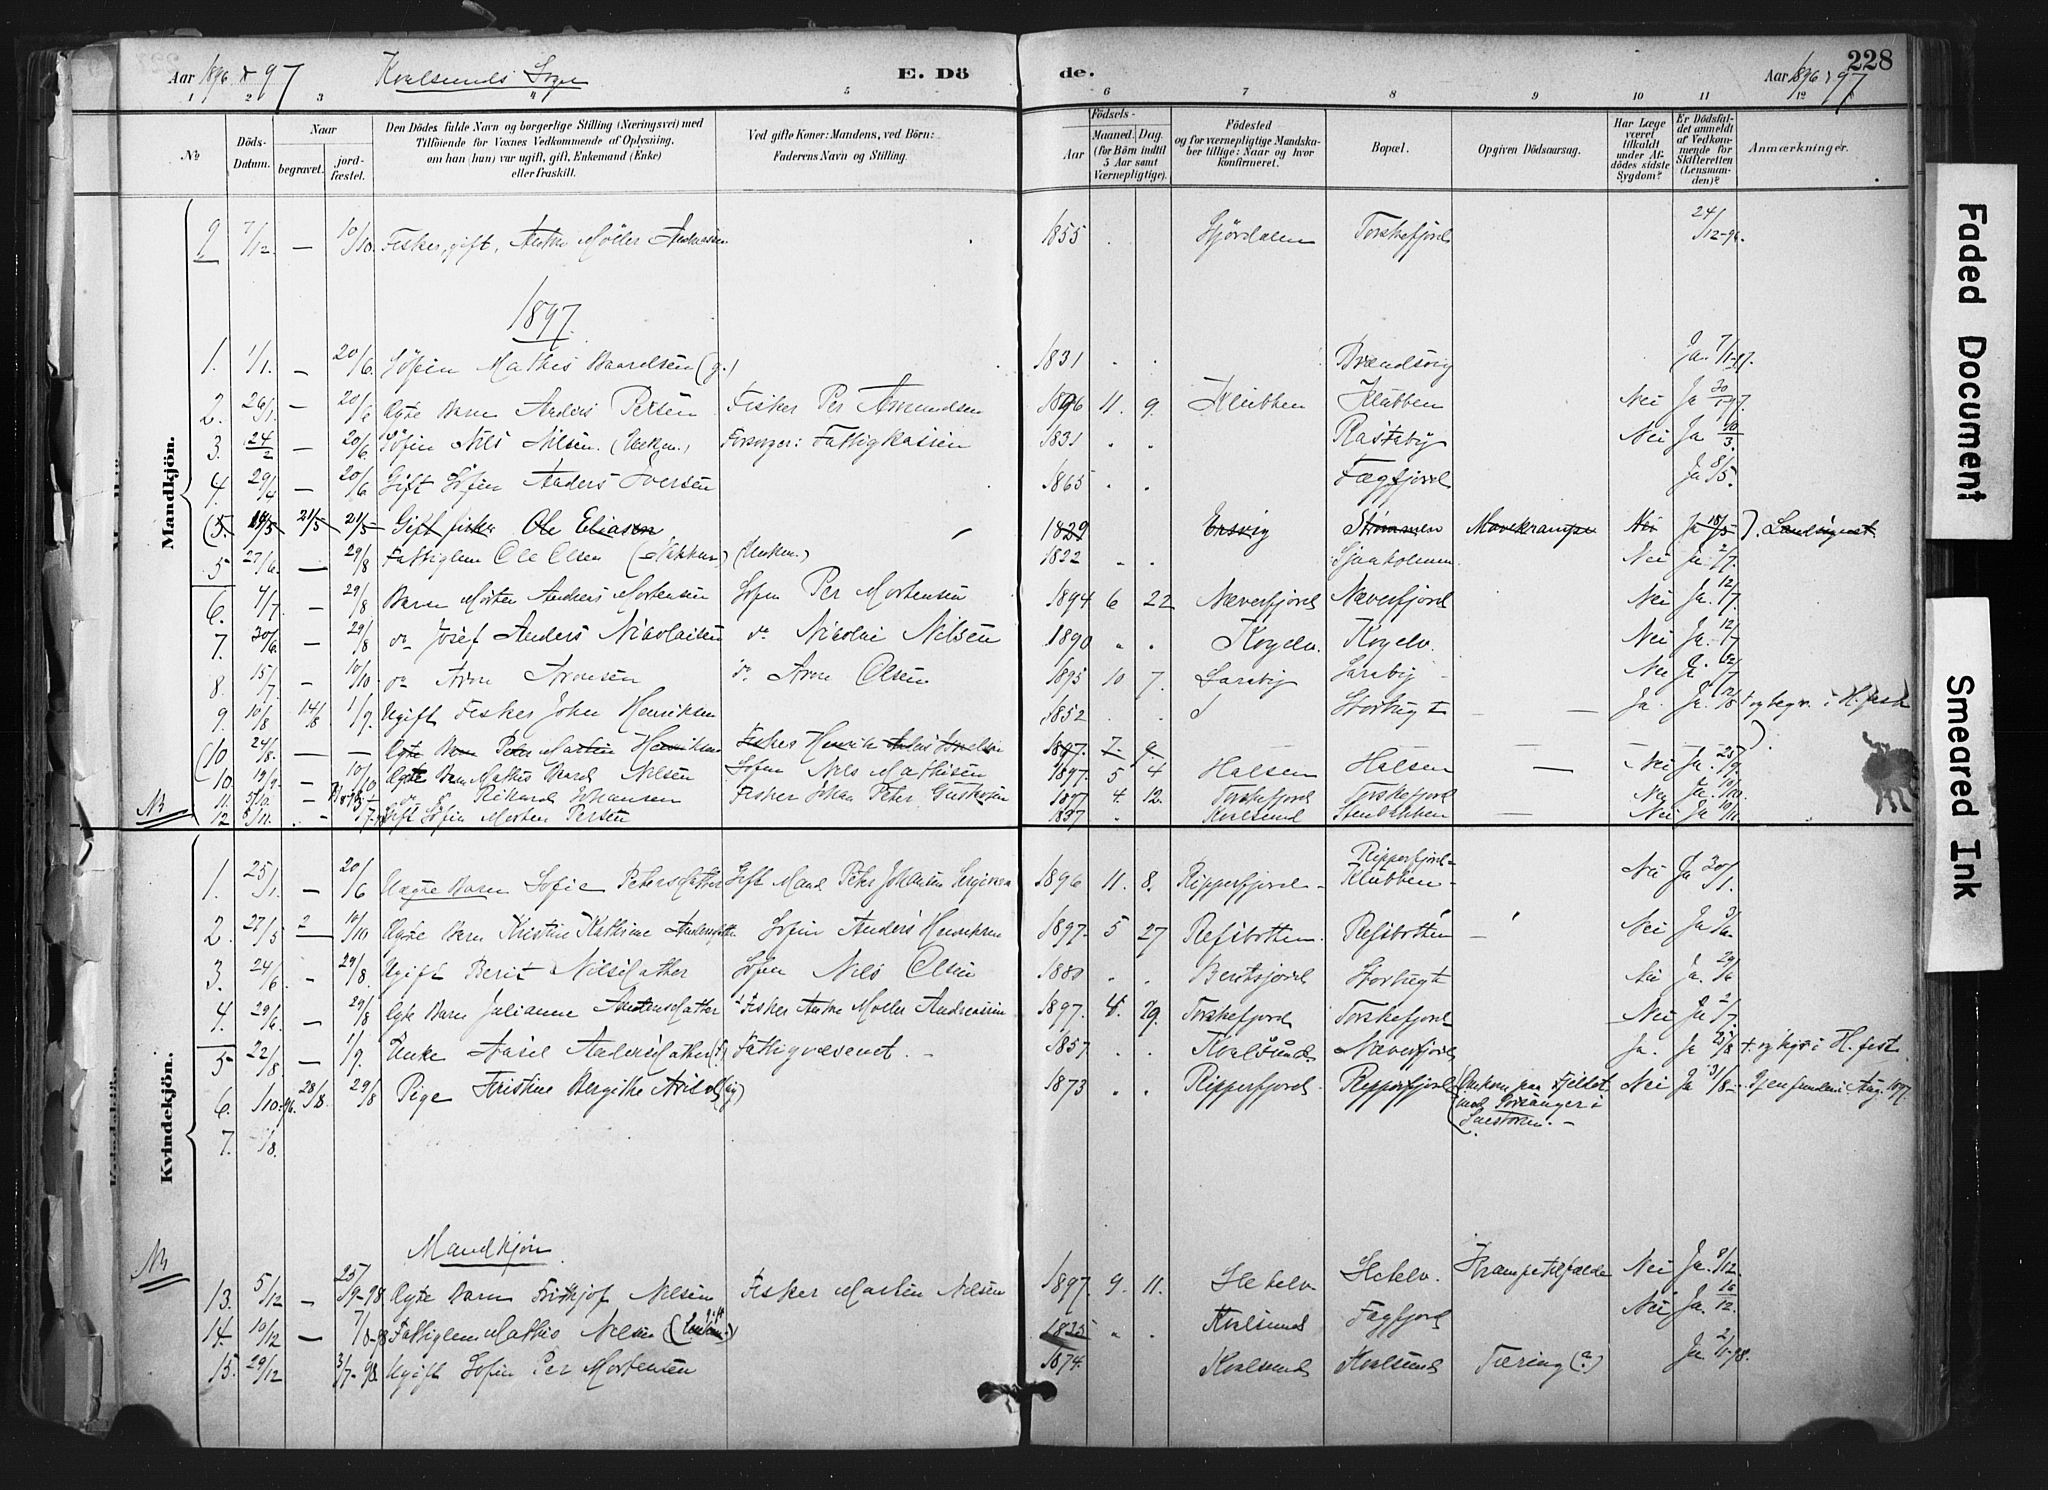 Aar 1896 & 97 Kvalsunds Sogn E. Döde. Aar 1896 & 97 228
1 2 3 4 5 6 7 8 9 10 11 12
No
Döds-Datum.
Naar
begravet.
jord-fæstet.
Den Dödes fulde Navn og borgerlige Stilling (Næringsvei) med
Tilföiende for Voxnes Vedkommende af Oplysning,
om han (hun) var ugift, gift, Enkemand (Enke)
eller fraskilt.
Ved gifte Koner: Mandens, ved Börn:
Faderens Navn og Stilling.
Födsels-
Aar
Maaned. Dag.
(for Börn indtil
5 Aar samt
Værnepligtige).
Födested
og for værnepligtige Mandska-
ber tillige: Naar og hvor
konfirmeret.
Bopæl.
Opgiven Dödsaarsag.
Har Læge
været
tilkaldt
under Af-
dödes sidste
Sygdom?
Er Dödsfal-
det anmeldt
af Vedkom-
mende for
Skifteretten
(Lensman-
den)?
Anmærkninger.
Mandkjön.
9 7/12 — 10/10 Fisker, gift, Anthe Möller Andreassen 1855 Stjördalen Torskefjord 24/12-96.
1897.
1. 1/1. — 20/6. Söfin Mathis Baardsen (g.) 1831 Brændsvig Ja. 7/1-97.
2. 26/1 — 20/6 Ægte Barn Anders Persen Fisker Per Amundsen 1896 11. 9. Klubben Klubben Nei Ja 30/1-97.
3. 24/2 — 20/6 Söfin Nils Nilsen. (Enkem.) Forsorger: Fattigkassen 1831 Rastaby Nei Ja 10/3.
4. 29/4 — 20/6 Gift Söfin Anders Iversen 1865 Fægfjord Ja 8/5.
(5. 14/5 21/5 21/5 Gift fisker Ole Eliasen 1829 Ersvig Strömmen Mavekrampe Nei Ja 18/5 ). Landsognet
5 27/6. — 29/8 Fattiglem Ole Olsen (Enkem.) 1822 Sjaaholmen Nei Ja. 2/7.
6. 4/7. — 29/8 Barn Morten Andreas Mortensen Söfin Per Mortensen 1894 6 22 Næverfjord Næverfjord Nei Ja. 12/7.
7. 30/6. — 29/8 do Josef Anders Nikolaisen do Nikolai Nilsen 1890 Kogelv. Kogelv. Nei Ja. 12/7
8. 15/7. — 10/10 do Arne Arnesen do Arne Olsen 1895 10 7. Saraby Saraby Nei Ja
9. 10/8 14/8 1/9. Ugift Fisker John Henriksen 1852 Storbugt Ja. Ja. 12/8 + og begr. i H.fest
(10 24/8. — — Ægte Barn Peter Martin Henriksen Fisker Henrik 1897. 7 9. )
10. 19/9 — 10/10 Ægte Barn Mathis Baard Nilsen Söfin Nils Mathisen 1897. 5 4 Halsen Halsen — Nei Ja. 25/9.
11. 3/10. do Rikard Johansen Fisker Johan Peter 1897 4. 12. Torskefjord Torskefjord Nei Ja. 10.
NB 12 Gift Söfin Morten Persen 1837 Kvalsund Nei Ja
Kvindekjön.
1. 25/1. — 20/6 Uægte Barn Sofie Petersdatter Gift Mand Peter Johansen 1896 11. 8. Ripperfjord Ripperfjord-Klubben Nei Ja 30/1.
2. 27/5 — 10/10 Ægte Barn Kristine Kathrine Andersdatter Söfin Anders Henriksen 1897. 5 27 Refsbotten. Refsbotten — Nei Ja 3/6.
3. 24/6. — 29/8. Ugift Berit Nilsdatter Söfin Nils Olsen Storbugt Nei Ja. 29/6
4. 29/6. — 29/8 Ægte Barn Julianne Andersdatter Fisker Anthe Moller Andreassen 1897. 4. 29. Torskefjord Torskefjord Nei Ja 2/7.
5 22/8. — 1/9. Enke Aasel Andersdatter Fattigvæsenet. 1857 Kvalsund Næverfjord Ja. Ja 25/8 + og begr. i H.fest.
6. 1/10.-96. 28/8 29/8 Pige Kristine Bergithe 1873 Ripperfjord. Ripperfjord Omkom paa Fjeldet mod Porsanger i Snestorm. — Nei Ja 31/8 - Gjenfunden i Aug. 1897.
7. /8.
NB Mandkjön.
13. 5/12 — 25/9-98 Ægte Barn Fritkjof Nilsen Fisker Morten Nilsen 1897. 9. 11. Stetelv Stetelv. Krampetilfælde Nei Ja. 9/12.
14. 10/12 — 7/8-98 Fattiglem Mathis Nilsen 1835 Kvalsund Fægfjord Nei Ja. 16/12.
15. 29/12 3/7-98. Ugift Söfin Per Mortensen 1874. Kvalsund Kvalsund Tæring (?) Ja 2/1-98.
Faded Document
Smeared Ink